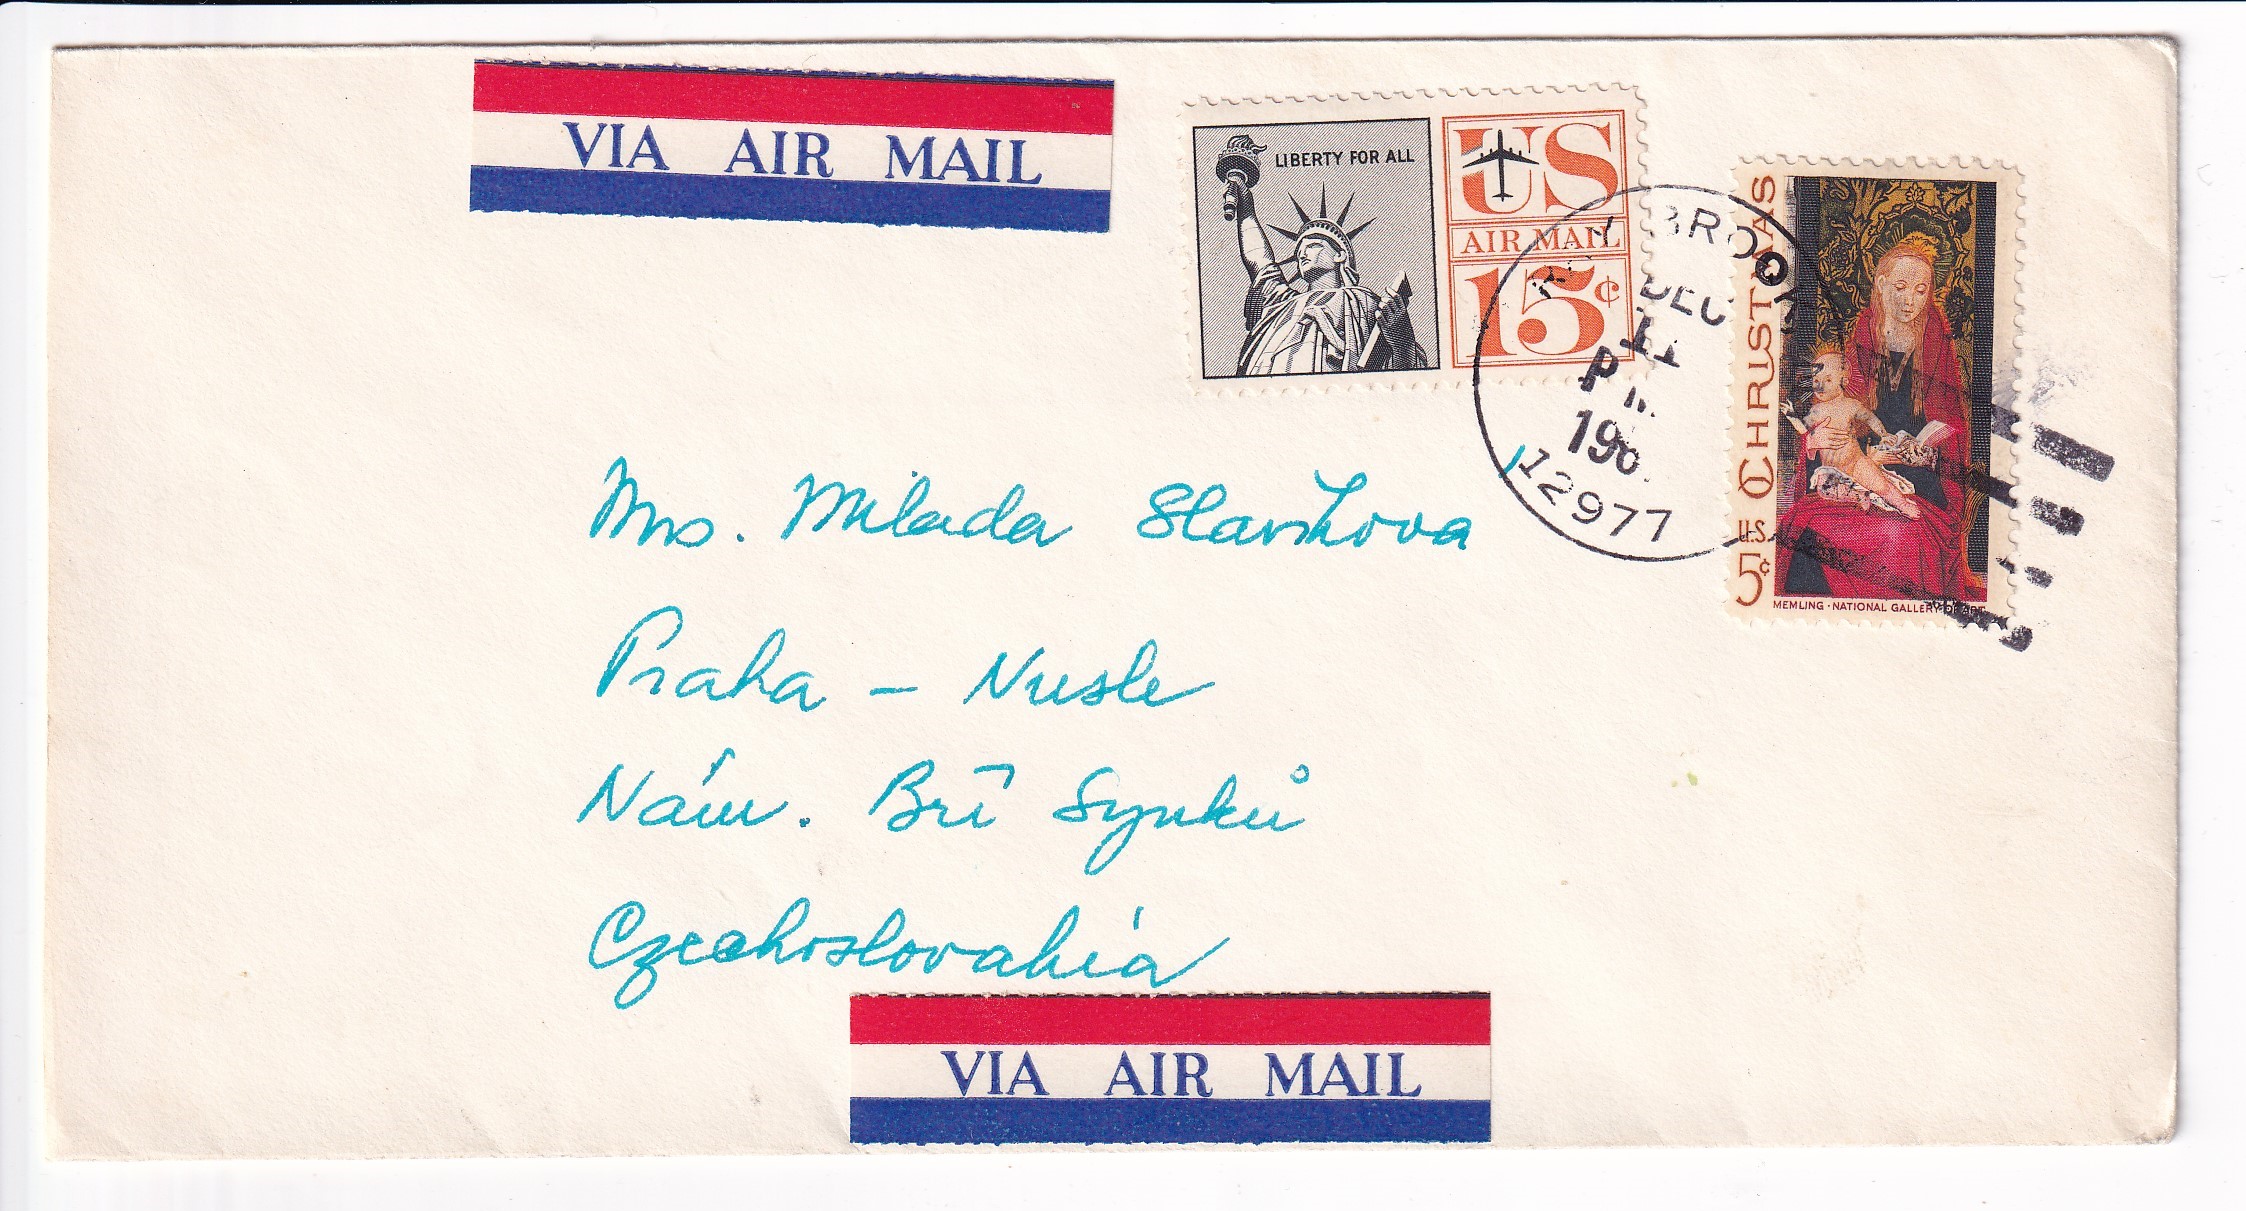 VIA AIR MAIL
LIBERTY FOR ALL
US
AIR MAIL
15¢
CHRISTMAS
U.S.
5¢
MEMLING · NATIONAL GALLERY OF ART
DEC
11
PM
12977
Mrs. Milada Slavikova
Praha - Nusle
Nám. Brí Synků
Czechoslovakia
VIA AIR MAIL